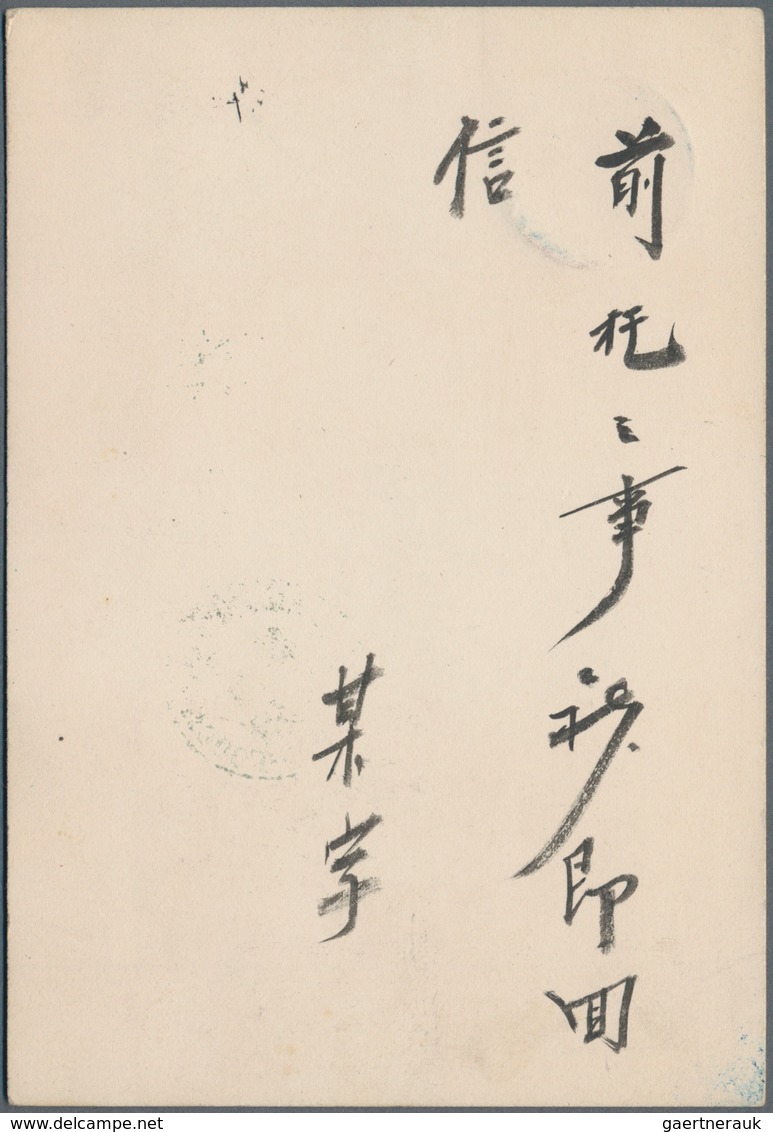 前托之事祈即回
信
某字
www.delcampe.net
gaertnerauk